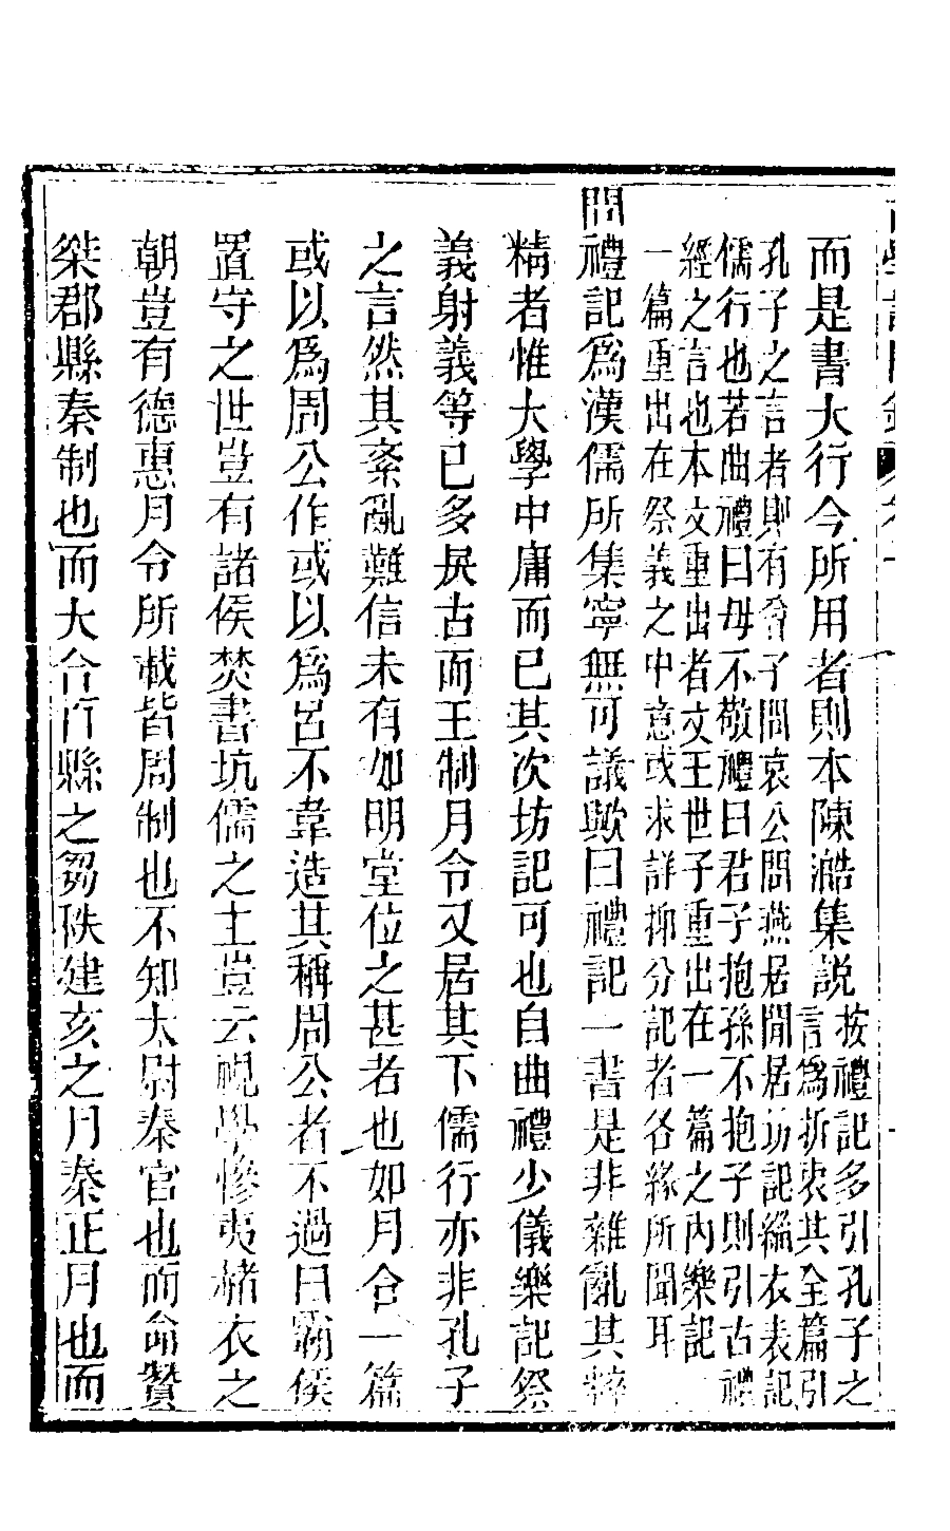 而是書大行今所用者則本陳澔集說
按禮記多引孔子之
言爲折衷其全篇引
孔子之言者則有曾子問哀公問燕居閒居坊記緇衣表記
儒行也若曲禮曰毋不敬禮曰君子抱孫不抱子則引古禮
經之言也本文重出者文王世子重出在一篇之內樂記
一篇重出在祭義之中意或求詳抑分記者各緣所聞耳
問禮記爲漢儒所集寧無可議歟曰禮記一書是非雜亂其粹
精者惟大學中庸而已其次坊記可也自曲禮少儀樂記祭
義射義等已多戾古而王制月令又居其下儒行亦非孔子
之言然其紊亂難信未有如明堂位之甚者也如月令一篇
或以爲周公作或以爲呂不韋造其稱周公者不過曰霸侯
置守之世豈有諸侯焚書坑儒之主豈云視學慘夷赭衣之
朝豈有德惠月令所載皆周制也不知太尉秦官也而命贊
桀郡縣秦制也而大合百縣之芻秩建亥之月秦正月也而